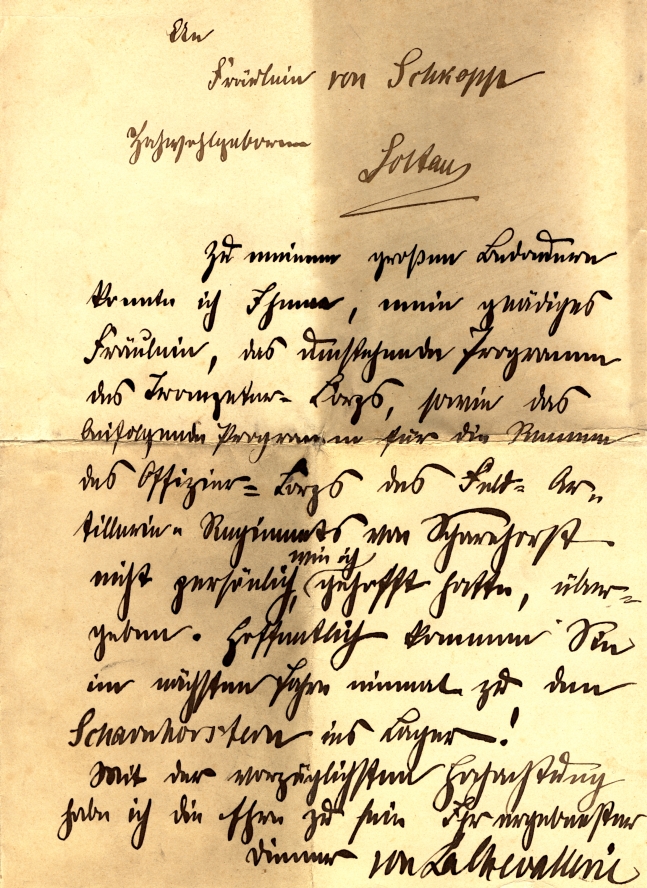 An
Fräulein von Schkopp
Hochwohlgeboren
Soltau
Zu meinem großen Bedauern
konnte ich Ihnen, mein gnädiges
Fräulein, das umstehende Programm
des Trompeter-Corps, sowie das
beifolgende Programm für die Rennen
des Offizier-Corps des Feld-Ar-
tillerie-Regiments von Scharnhorst
nicht persönlich, wie ich gehofft hatte, über-
geben. Hoffentlich kommen Sie
im nächsten Jahre einmal zu den
Scharnhorstern ins Lager!
Mit der vorzüglichsten Hochachtung
habe ich die Ehre zu sein Ihr ergebenster
Diener von LaChevallerie